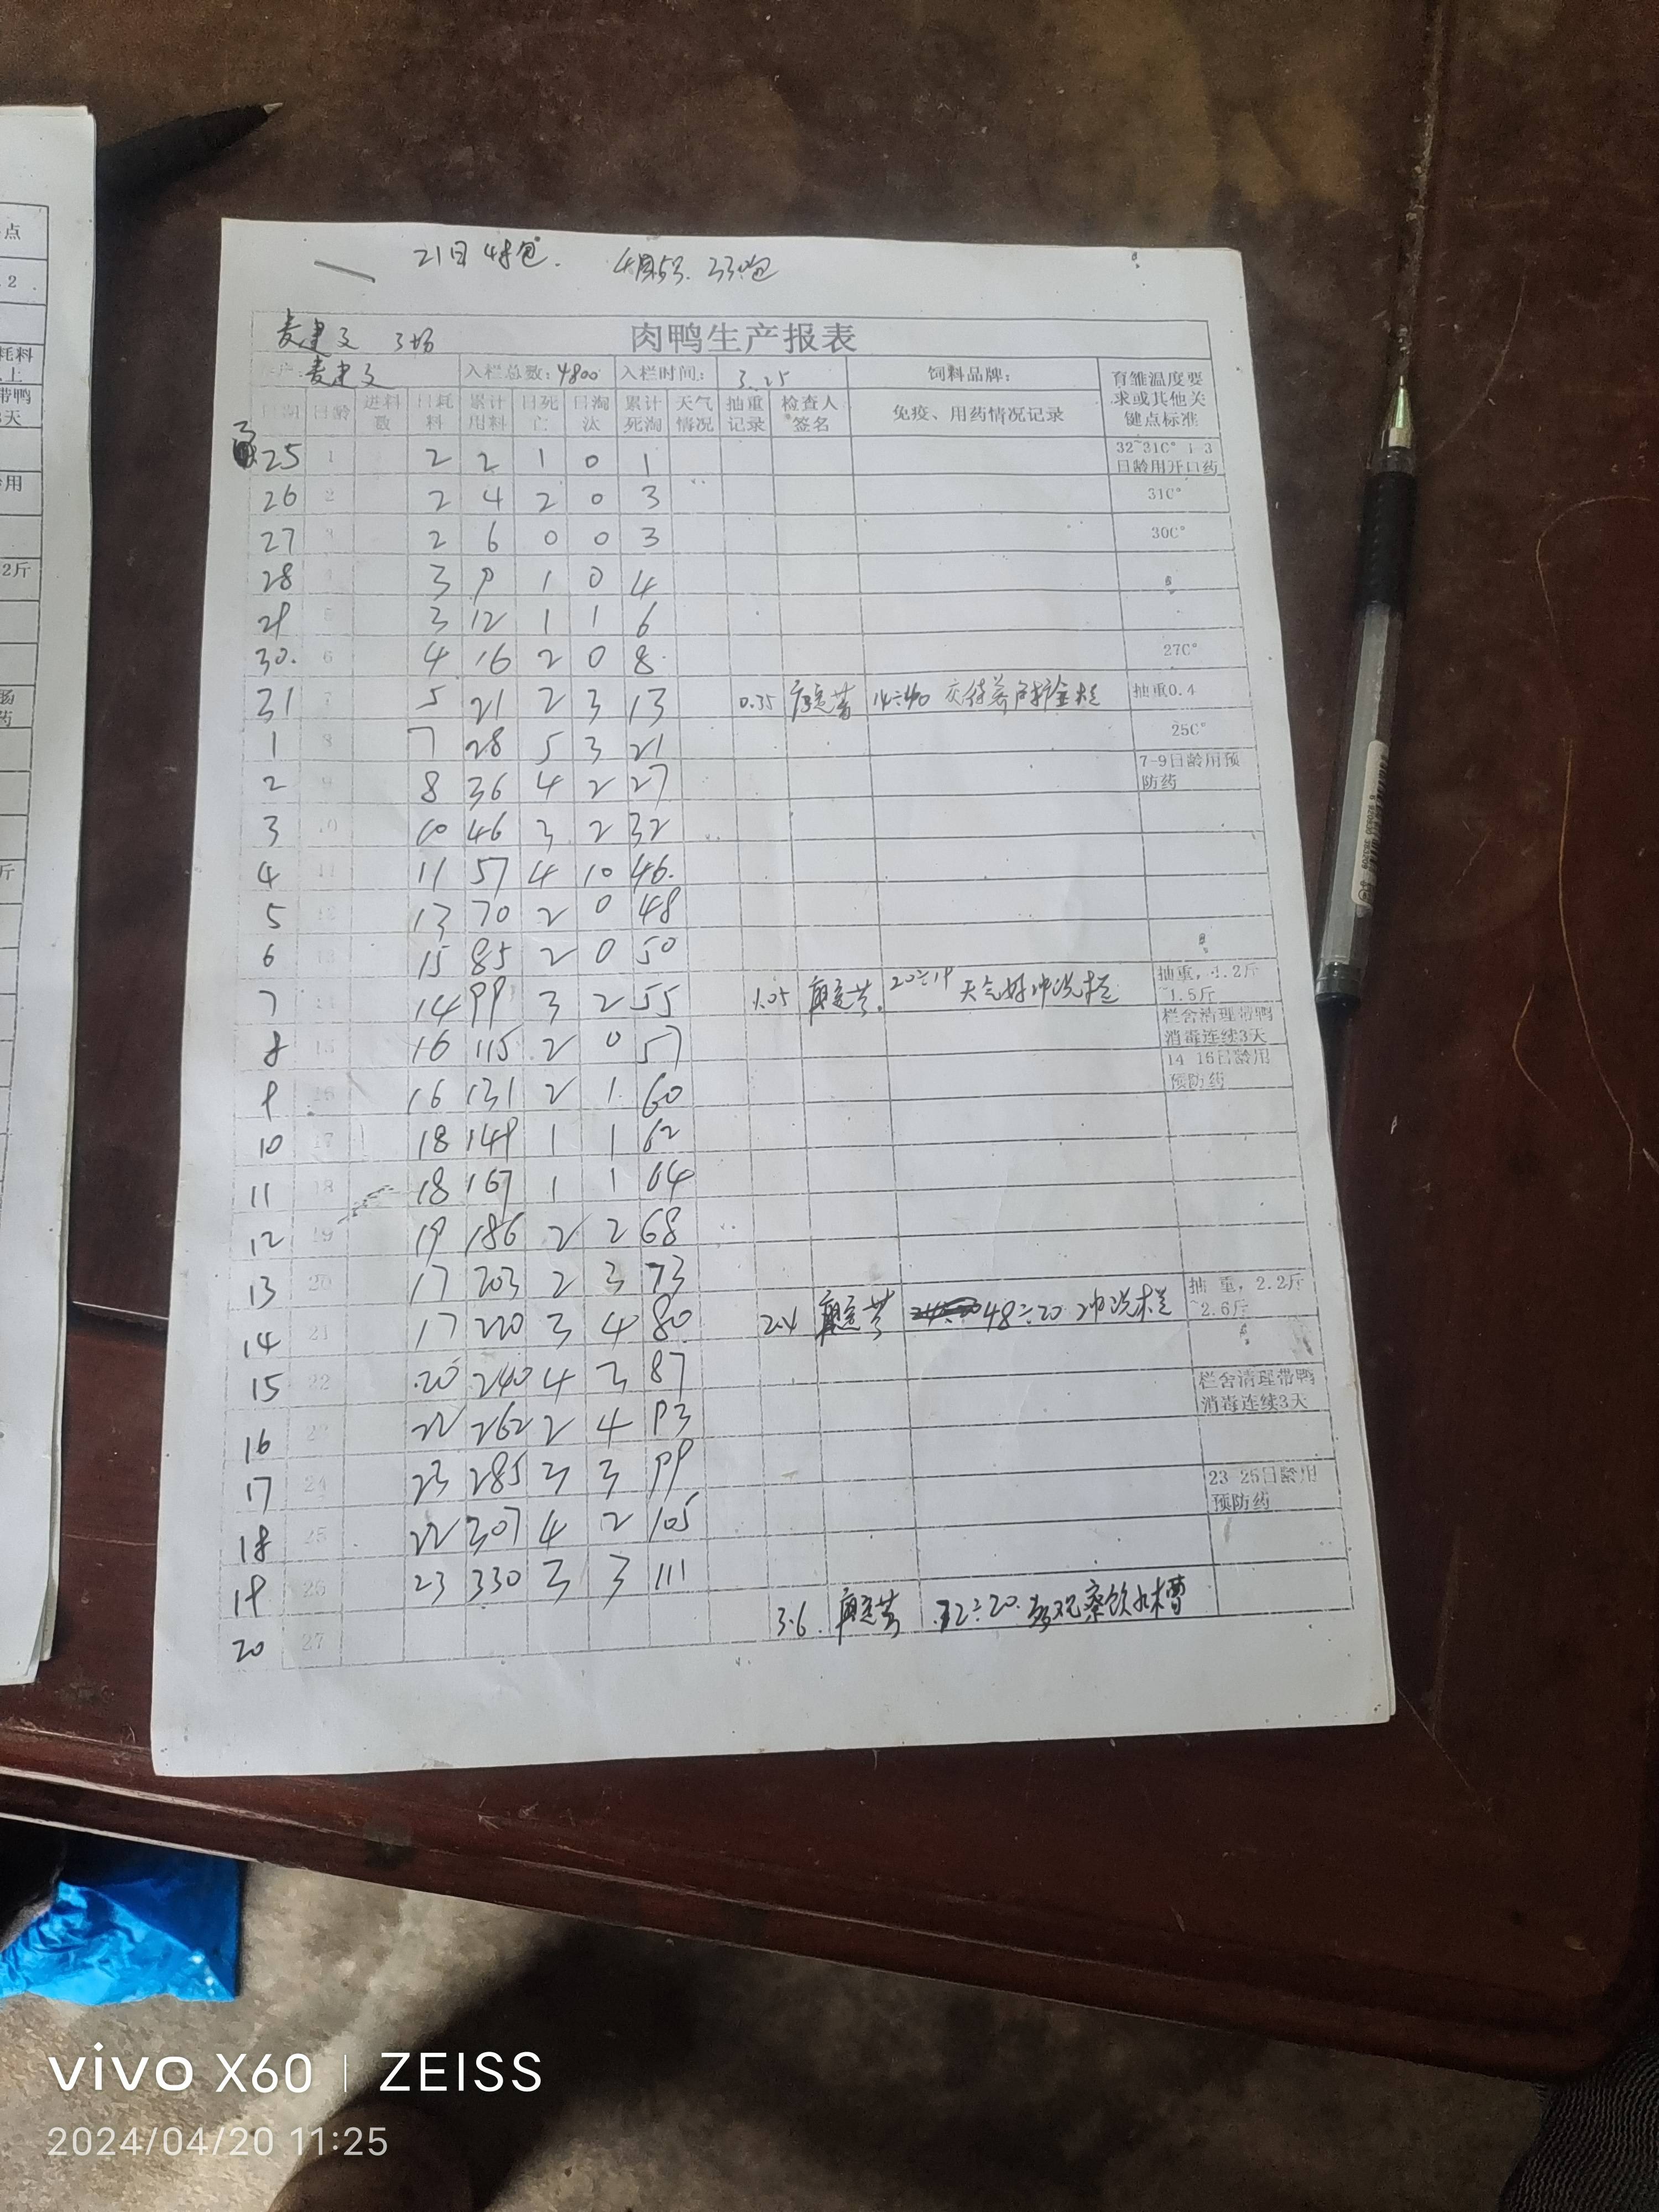 21日 48包. 4月5号. 230包
麦建文 3场 肉鸭生产报表
麦建文 入栏总数: 4800 入栏时间: 3.25 饲料品牌: 育雏温度要求或其他关键点标准
日期 日龄 进料数 日耗料 累计用料 日死亡 日淘汰 累计死淘 天气情况 抽重记录 检查人签名 免疫、用药情况记录
3.25 1 2 2 1 0 1 32~31C° 1-3日龄用开口药
26 2 2 4 2 0 3 31C°
27 3 2 6 0 0 3 30C°
28 4 3 9 1 0 4
29 5 3 12 1 1 6
30. 6 4 16 2 0 8 27C°
31 7 5 21 2 3 13 0.35 抽重0.4
1 8 7 28 5 3 21 25C°
2 9 8 36 4 2 27 7-9日龄用预防药
3 10 10 46 3 2 32
4 11 11 57 4 10 46.
5 12 13 70 2 0 48
6 13 15 85 2 0 50
7 14 14 99 3 2 55 1.05 20÷19 天气好冲洗栏 抽重,1.2斤~1.5斤
8 15 16 115 2 0 57 栏舍清理带鸭消毒连续3天
9 16 16 131 2 1 60 14-16日龄用预防药
10 17 18 149 1 1 62
11 18 18 167 1 1 64
12 19 19 186 2 2 68
13 20 17 203 2 3 73
14 21 17 220 3 4 80 2.4 48÷20 冲洗栏 抽重,2.2斤~2.6斤
15 22 20 240 4 3 87 栏舍清理带鸭消毒连续3天
16 23 22 262 2 4 93
17 24 23 285 3 3 99 23-25日龄用预防药
18 25 22 307 4 2 105
19 26 23 330 3 3 111
20 27 3.6 72÷20. 多观察饮水槽
点
2
耗料
上
带鸭
3天
用
2斤
肠
药
斤
vivo X60 | ZEISS
2024/04/20 11:25